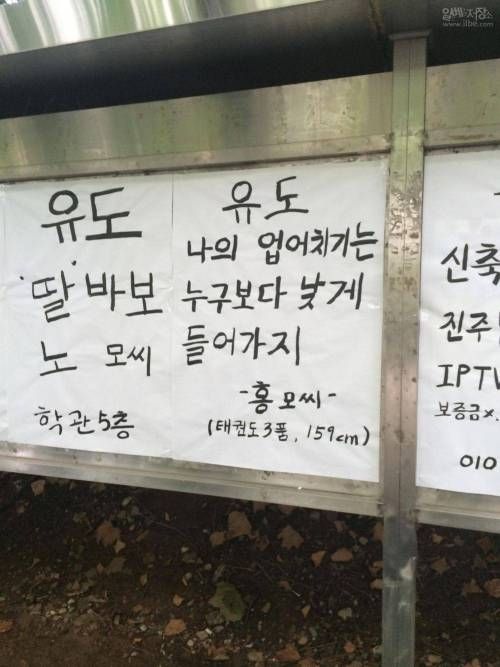 일베저장소
www.ilbe.com
유도
딸바보
노 모씨
학관5층
유도
나의 업어치기는
누구보다 낮게
들어가지
-홍모씨-
(태권도3품, 159cm)
신축
진주
IPTV
보증금x.
010